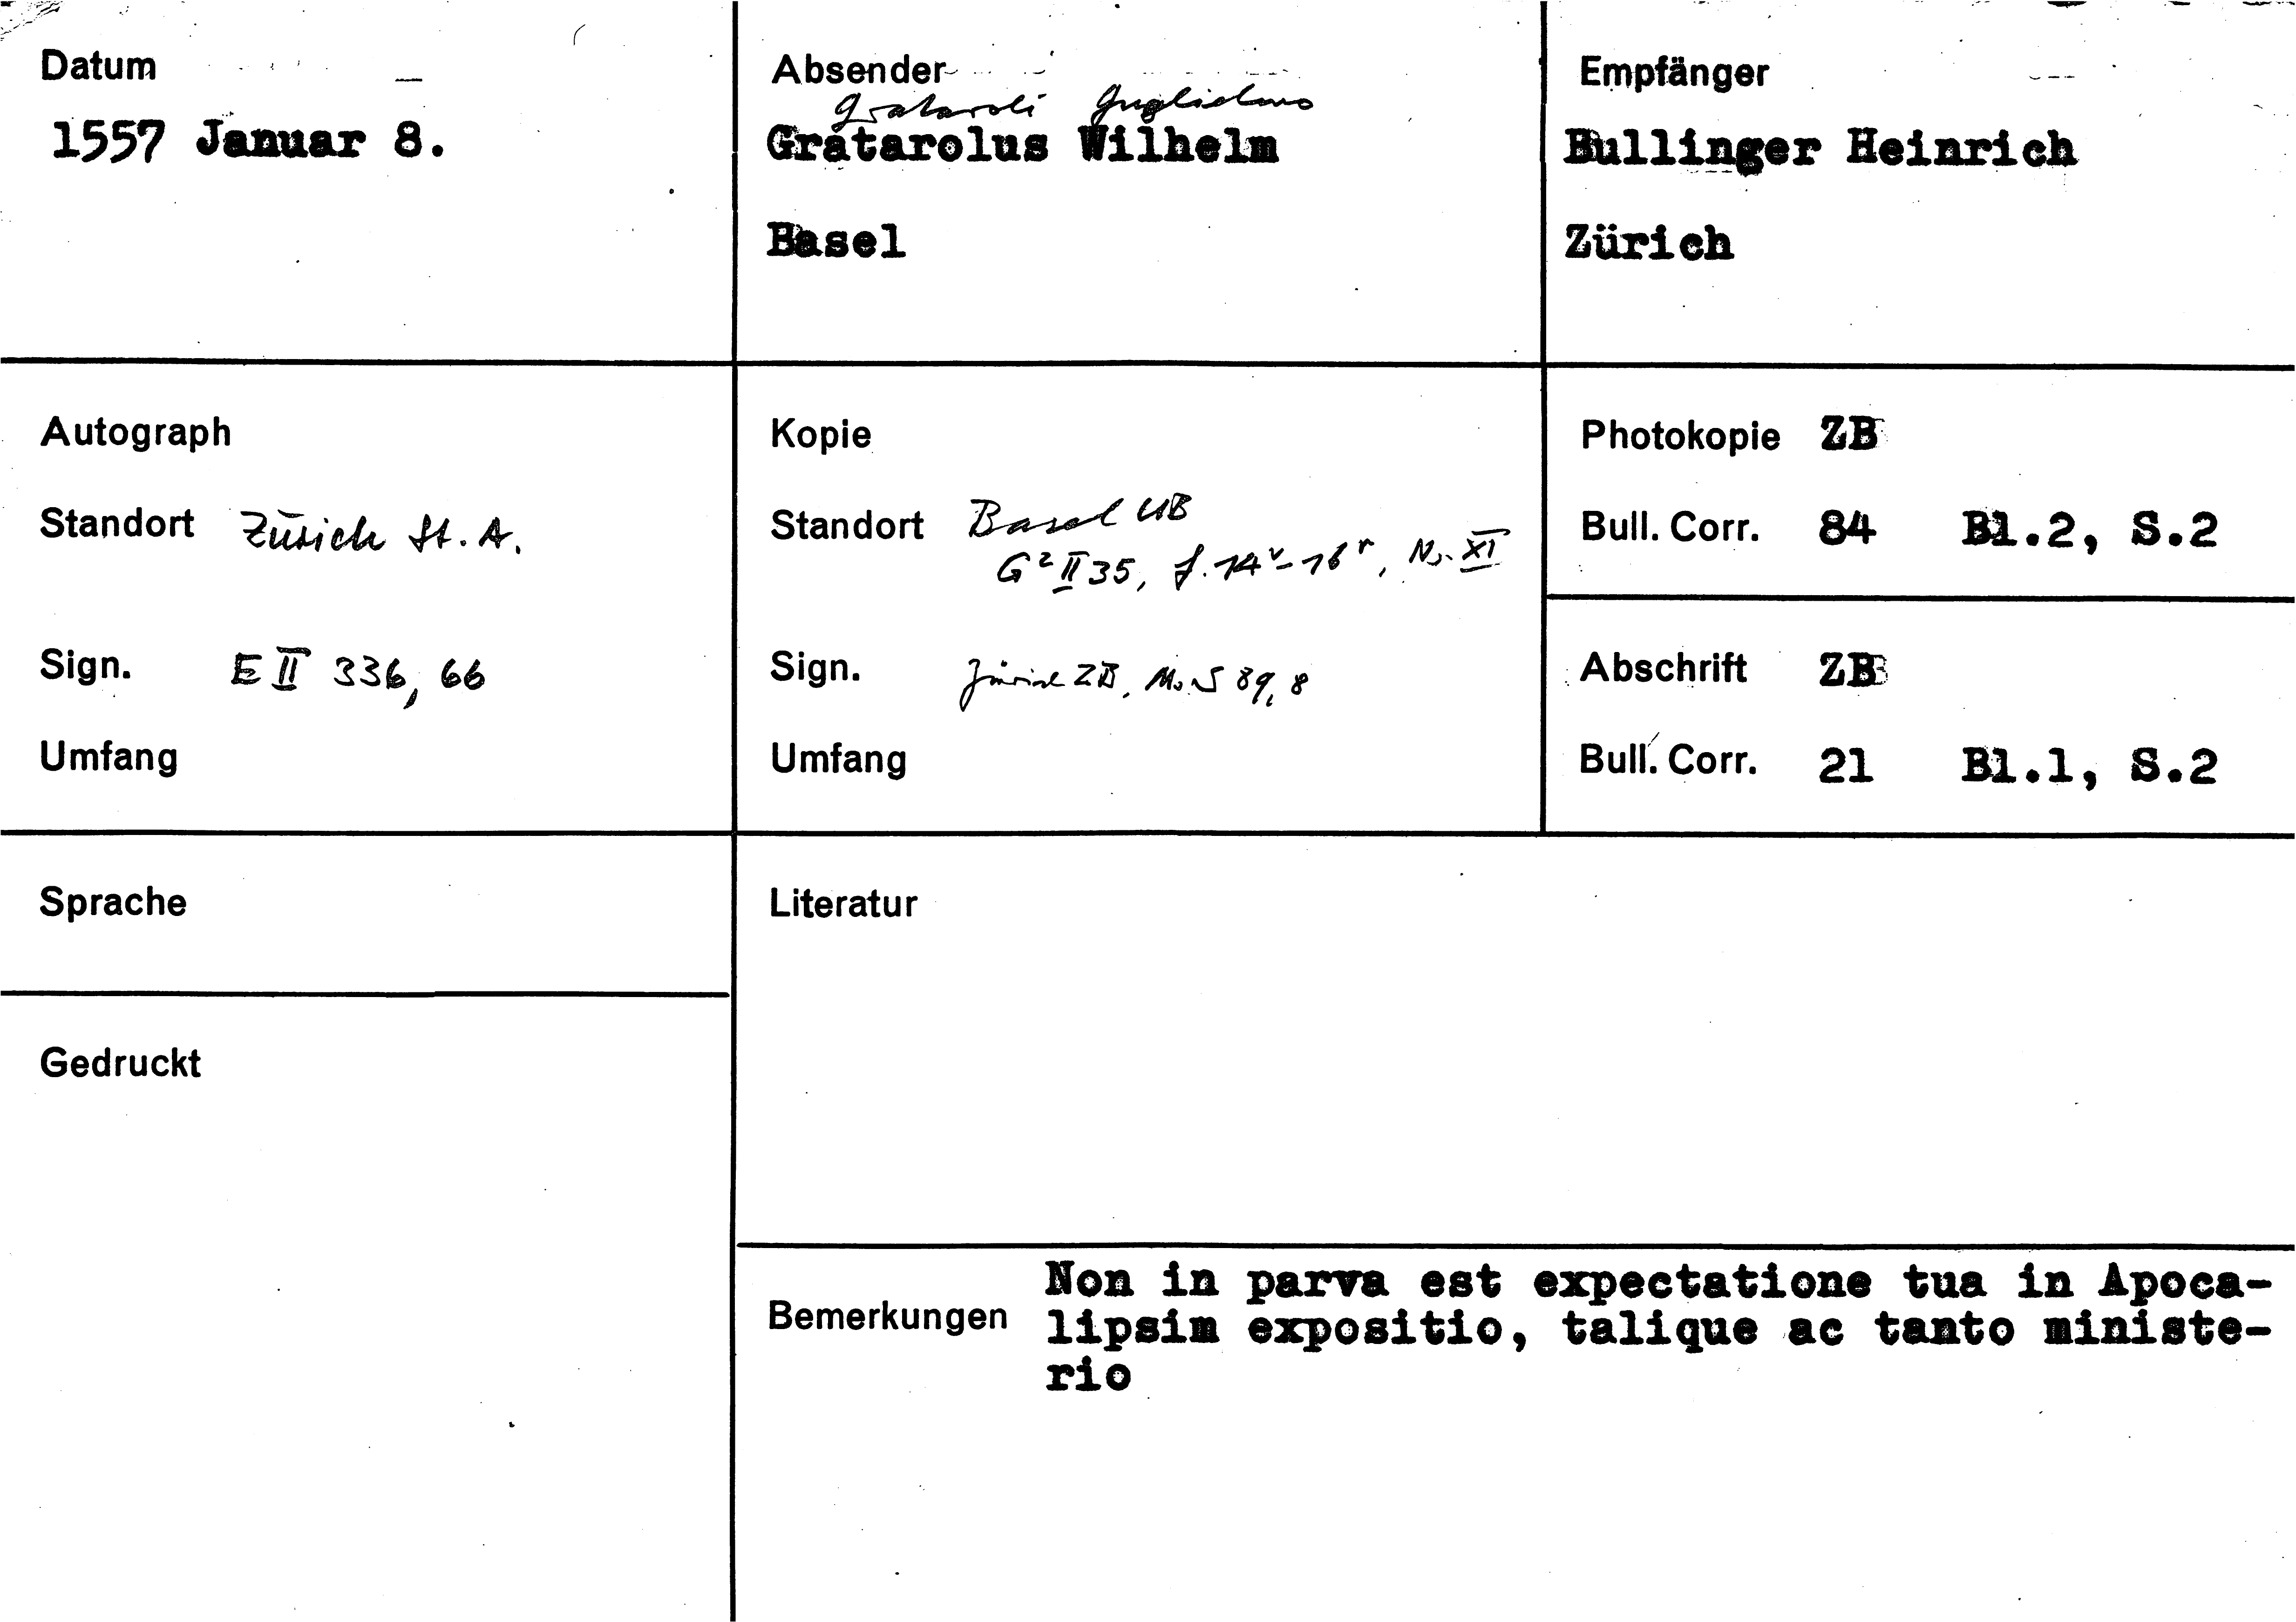 Datum
1557 Januar 8.
Absender
Grataroli Guglielmo
Gratarolus Wilhelm
Basel
Empfänger
Bullinger Heinrich
Zürich
Autograph
Standort Zürich St. A.
Sign. E II 336, 66
Umfang
Kopie
Standort Basel UB
G² II 35, f. 14ᵛ-16ʳ, Nr. XI
Sign. Zürich ZB, Ms. S 89, 8
Umfang
Photokopie ZB
Bull. Corr. 84 Bl.2, S.2
Abschrift ZB
Bull. Corr. 21 Bl.1, S.2
Sprache
Gedruckt
Literatur
Bemerkungen
Non in parva est expectatione tua in Apoca-
lipsim expositio, talique ac tanto ministe-
rio